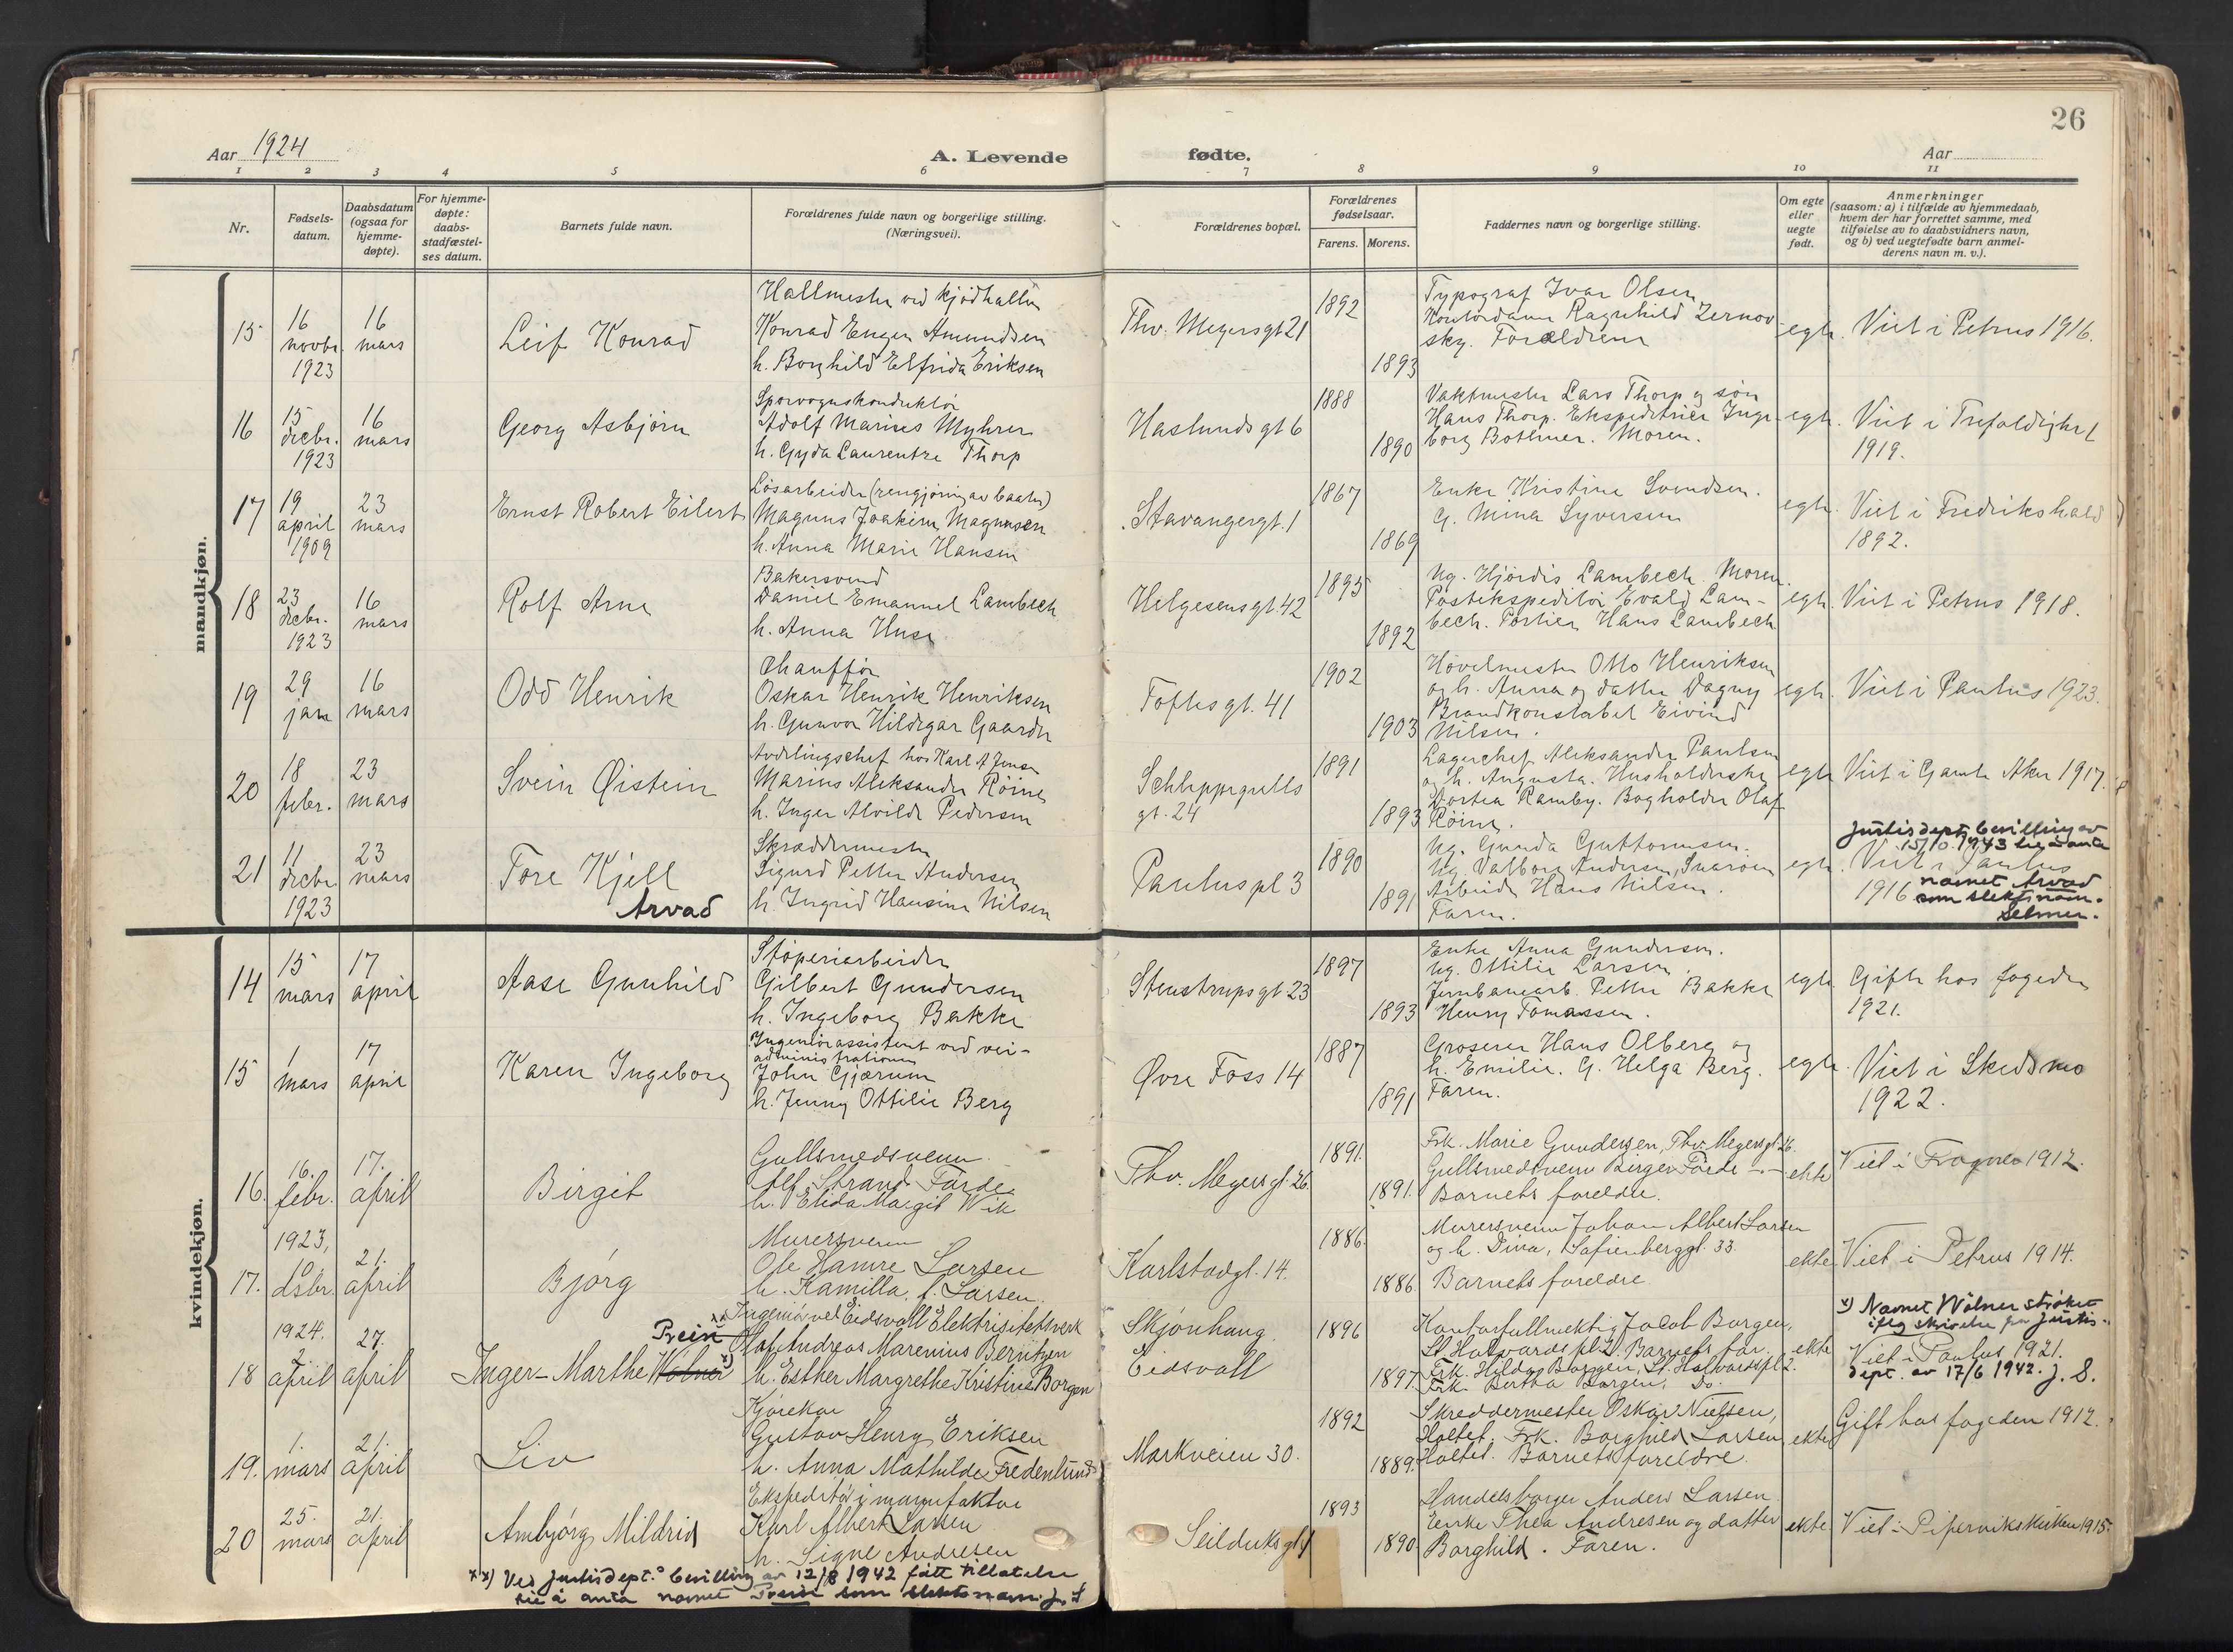 26
Aar 1924
A. Levende
fødte.
Aar
1 2 3 4 5 6 7 8 9 10 11
Nr.
Fødsels-
datum.
Daabsdatum
(ogsaa for
hjemme-
døpte).
For hjemme-
døpte:
daabs-
stadfæstel-
ses datum.
Barnets fulde navn.
Forældrenes fulde navn og borgerlige stilling.
(Næringsvei).
Forældrenes bopæl.
Forældrenes
fødselsaar.
Farens. Morens.
Faddernes navn og borgerlige stilling.
Om egte
eller
uegte
født.
Anmerkninger
(saasom: a) i tilfælde av hjemmedaab,
hvem der har forrettet samme, med
tilføielse av to daabsvidners navn,
og b) ved uegtefødte barn anmel-
derens navn m. v.).
mandkjøn.
15
16
novbr.
1923
16
mars
Leif Konrad
Hallmester ved kjødhallen
Konrad Enger Amundsen
h. Borghild Elfrida Eriksen
Thv. Meyersgt 21
1892
1893
Typograf Ivar Olsen
Kontordame Ragnhild Zernov
sky. Forældrene
egte.
Viet i Petrus 1916.
16
15
decbr.
1923
16
mars
Georg Asbjørn
Sporvognskonduktør
Adolf Marius Myhrer
h. Gyda Laurentze Thorp
Haslunds gt 6
1888
1890
Vaktmester Lars Thorp og søn
Hans Thorp. Ekspeditrice Inge-
borg Bothner. Moren.
egte.
Viet i Trefoldighet
1919.
17
19
april
1909
23
mars
Ernst Robert Eilert
Løsarbeider (rengjøring av baater)
Magnus Joakim Magnusen
h. Anna Marie Hansen
Stavangergt. 1
1867
1869
Enke Kristine Svendsen.
G. Mina Syversen
egte.
Viet i Fredrikshald
1892.
18
23
decbr.
1923
16
mars
Rolf Arne
Bakersvend
Daniel Emanuel Lambech
h. Anna Huse
Helgesens gt. 42
1895
1892
Ug. Hjørdis Lambech. Moren.
Postekspeditør Evald Lam-
bech. Portier Hans Lambech
egte.
Viet i Petrus 1918.
19
29
jan
16
mars
Odd Henrik
Chauffør
Oskar Henrik Henriksen
h. Gunvor Hildegar Gaarder
Toftesgt. 41
1902
1903
Høvelmester Otto Henriksen
og h. Anna og datter Dagny
Brandkonstabel Eivind
Nilsen.
egte.
Viet i Paulus 1923.
20
18
febr.
23
mars
Svein Øistein
Avdelingschef hos Karl A Jensen
Marius Aleksander Røine
h. Inger Alvilde Pedersen
Schleppegrells
gt. 24
1891
1893
Lagerchef Aleksander Paulsen
og h. Augusta. Husholderske
Dortea Ramby. Bogholder Olaf
Røine.
egte
Viet i Gamle Aker 1917.
21
11
decbr
1923
23
mars
Tore Kjell
Arvad
Skræddermester
Sigurd Petter Andersen
h. Ingrid Hansine Nilsen
Paulus pl 3
1890
1891
Ug. Gunda Guttormsen.
Ug. Valborg Andersen, Snarøen
Arbeider Hans Nilsen.
Faren.
egte.
Viet i Paulus
1916
Justisdept. bevilling av
15/10. 1943 til å anta
navnet Arvad
som slektsnavn.
Selmer.
kvindekjøn.
14
15
mars
17
april
Aase Gunhild
Støperiarbeider
Gilbert Gundersen
h. Ingeborg Bakke
Stenstrupsgt 23
1897
1893
Enke Anna Gundersen.
Ug. Ottilie Larsen.
Jernbanearb. Petter Bakke
Henry Tomassen.
egte.
Gifte hos fogeden
1921.
15
1
mars
17
april
Karen Ingeborg
Ingeniørassistent ved vei-
administrationen
John Gjærum
h. Jenny Ottilie Berg
Øvre Foss 14
1887
1891
Groserer Hans Olberg og
h. Emilie. G. Helga Berg.
Faren.
egte.
Viet i Skedsmo
1922.
16.
16.
febr.
17.
april
Birgit
Gullsmedsvenn
Alf Strand Førde
h. Elida Margit Wik
Thv. Meyers gt. 26.
1891.
1891.
Frk. Marie Gundersen, Thv. Meyersgt. 26.
Gullsmedsvenn Birger Førde –"–
Barnets foreldre.
ekte
Viet i Frogner 1912.
17.
1923,
10.
dsbr.
21.
april
Bjørg
Murersvenn
Ole Hamre Larsen
h. Kamilla f. Larsen.
Karlstadgt. 14.
1886.
1886.
Murersvenn Johan Albert Larsen
og h. Dina, Sofienberggt. 33.
Barnets foreldre
ekte
Viet i Petrus 1914.
18
1924.
2.
april
27.
april
Inger-Marthe Wölner x)
Prein xx)
Ingeniør ved Eidsvoll Elektrisitetsverk
Olaf Andreas Marenius Berntzen
h. Esther Margrethe Kristine Borgen
Skjønhaug
Eidsvoll
1896
1897
Kontorfullmektig Jacob Borgen,
St. Halvards pl. 2. Barnets far.
Frk. Hilda Borgen, St. Halvardspl 2.
Frk. Bertha Borgen. Do.
ekte
x) Navnet Wölner strøket
ifølg skrivelse fra Justis-
Viet i Paulus 1921.
dept. av 17/6 1942. J. S.
19.
1.
mars
21.
april
Liv
Kjørekar
Gustav Henry Eriksen
h. Anna Mathilde Fredenlund
Markveien 30.
1892
1889.
Skreddermester Oskar Nielsen,
Holtet. Frk. Borghild Larsen
Holtet. Barnets foreldre.
ekte
Gift hos fogeden 1912.
20
25.
mars
21.
april
Ambjørg Mildrid
Ekspeditør i manufaktur
Karl Albert Larsen
h. Signe Andresen
Seilduksgt
1893
1890.
Handelsborger Anders Larsen
Enke Thea Andresen og datter
Borghild. Faren.
ekte
Viet i Piperviks kirken 1915.
xx) Ved Justisdept.s bevilling av 12/8 1942 fått tillatelse
til å anta navnet Prein som slektsnavn. J. S